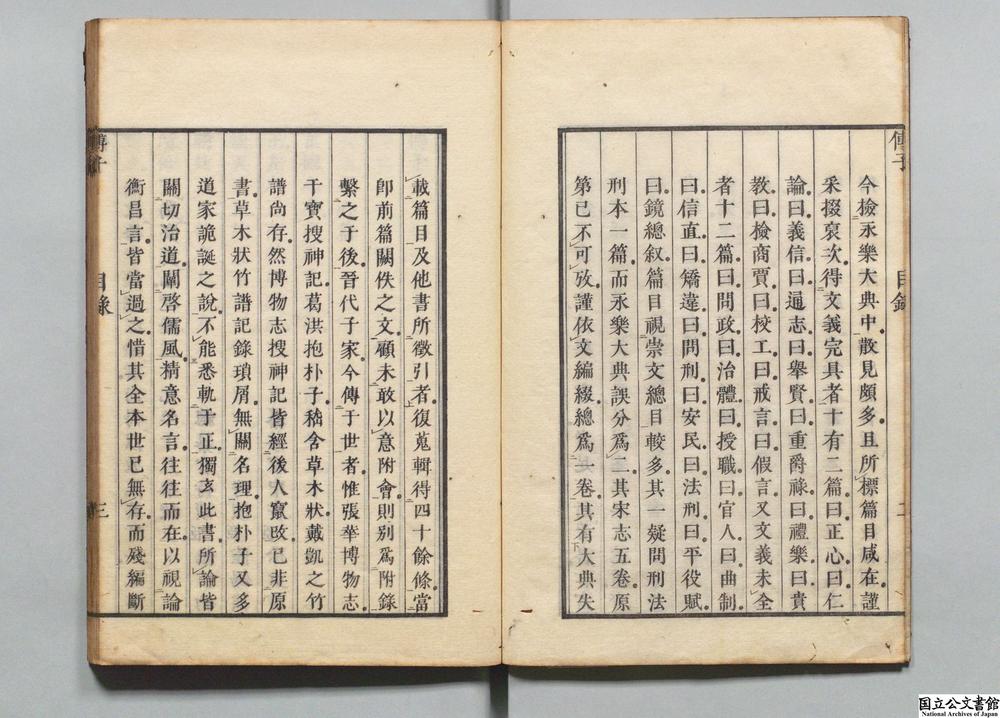 傅子
目錄
二
今檢永樂大典中散見頗多且所標篇目咸在謹
采掇裒次得文義完具者十有二篇曰正心曰仁
論曰義信曰通志曰舉賢曰重爵祿曰禮樂曰貴
教曰檢商賈曰校工曰戒言曰假言又文義未全
者十二篇曰問政曰治體曰授職曰官人曰曲制
曰信直曰矯違曰問刑曰安民曰法刑曰平役賦
曰鏡總叙篇目視崇文總目較多其一疑問刑法
刑本一篇而永樂大典誤分爲二其宋志五卷原
第已不可攷謹依文編綴總爲一卷其有大典失
載篇目及他書所徵引者復蒐輯得四十餘條當
卽前篇闕佚之文顧未敢以意附會則别爲附錄
繫之于後晉代子家今傳于世者惟張華博物志
干寶搜神記葛洪抱朴子嵇含草木狀戴凱之竹
譜尚存然博物志搜神記皆經後人竄改已非原
書草木狀竹譜記錄瑣屑無關名理抱朴子又多
道家詭誕之說不能悉軌于正獨玄此書所論皆
關切治道闡啓儒風精意名言往往而在以視論
衡昌言皆當過之惜其全本世已無存而殘編斷
傅子
目錄
三
国立公文書館
National Archives of Japan